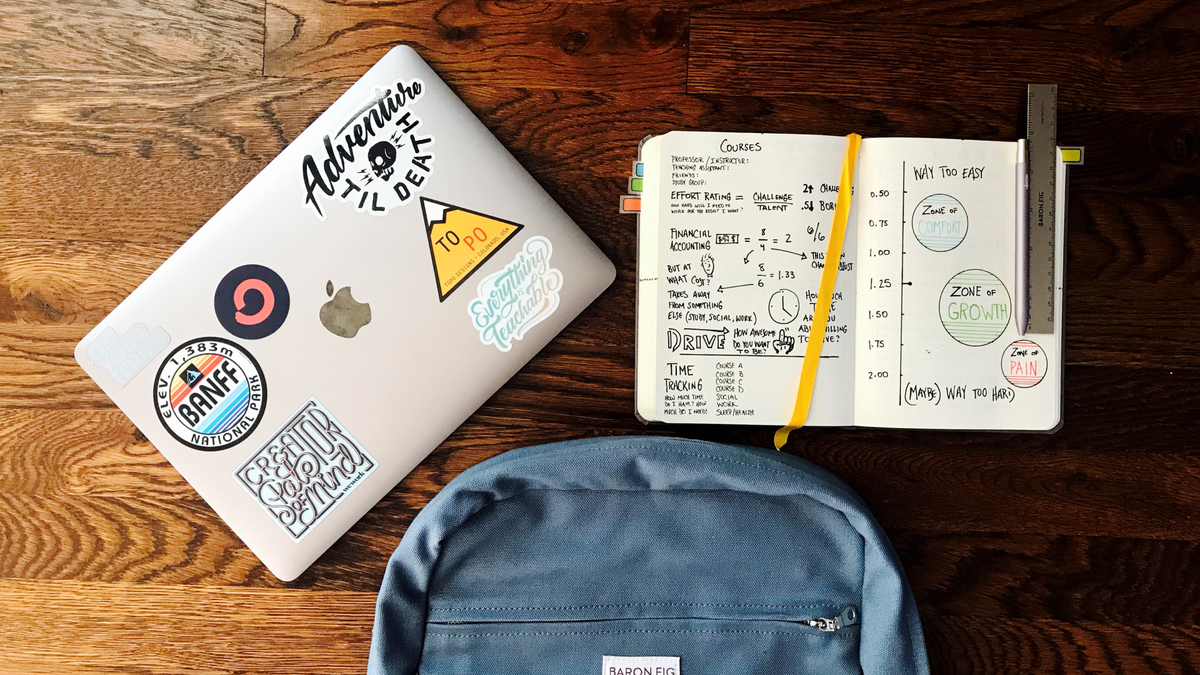 Adventure
TIL DEATH
TO
PO
TOPO DESIGNS - COLORADO, USA
Everything
is
Teachable
ELEV. 1,383m
BANFF
NATIONAL PARK
CREATOR
PalOR
OF Mind
WEWORK
COURSES
PROFESSOR / INSTRUCTOR:
TEACHING ASSISTANT:
FRIENDS:
STUDY GROUP:
EFFORT RATING = CHALLENGE
TALENT
HOW HARD WILL I NEED TO
WORK FOR THE RESULT I WANT?
2↑
.5↓
FINANCIAL
ACCOUNTING
= 8
4
= 2
6/6
THIS
BUT AT
WHAT COST?
8
6
= 1.33
TAKES AWAY
FROM SOMETHING
ELSE (STUDY, SOCIAL, WORK)
HOW MUCH
DRIVE
HOW AWESOME
DO YOU WANT
TO BE?
TIME
TRACKING
HOW MUCH TIME
DO I HAVE? HOW
MUCH DO I NEED?
COURSE A
COURSE B
COURSE C
COURSE D
SOCIAL
WORK
SLEEP/HEALTH
WAY TOO EASY
0.50
0.75
1.00
1.25
1.50
1.75
2.00
ZONE OF
COMFORT
ZONE OF
GROWTH
ZONE OF
PAIN
(MAYBE) WAY TOO HARD
BARON FIG
BARON FIG